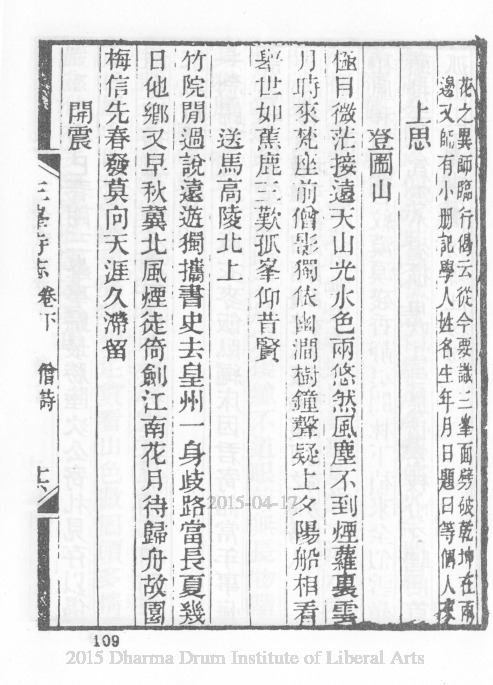 花之異師臨行偈云從今要識三峯面劈破乾坤在兩
邊又師有小册記學人姓名生年月日題曰等偶人來
上思
登圌山
極目微茫接遠天山光水色兩悠然風塵不到煙蘿裏雲
月時來梵座前僧影獨依幽澗樹鐘聲疑上夕陽船相看
舉世如蕉鹿三歎孤峯仰昔賢
送馬高陵北上
竹院閒過說遠遊獨攜書史去皇州一身歧路當長夏幾
日他鄉又早秋冀北風煙徒倚劍江南花月待歸舟故園
梅信先春發莫向天涯久滯留
開震
三峯寺志 卷下 僧詩
109
2015-04-17
2015 Dharma Drum Institute of Liberal Arts